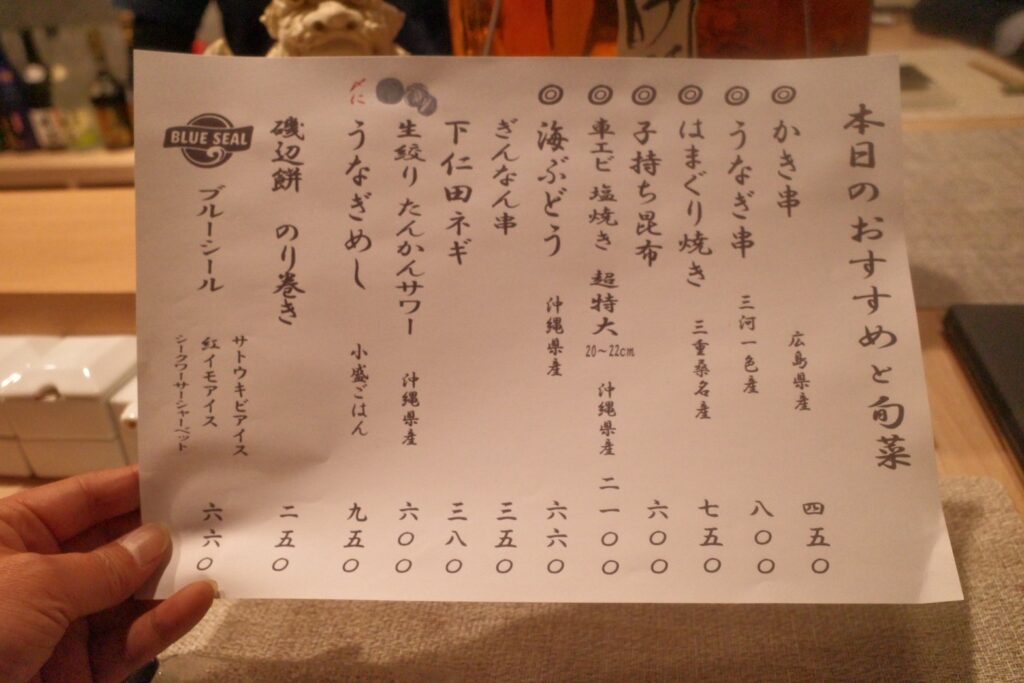 本日のおすすめと旬菜
◎ かき串 広島県産 四五〇
◎ うなぎ串 三河一色産 八〇〇
◎ はまぐり焼き 三重桑名産 七五〇
◎ 子持ち昆布 六〇〇
◎ 車エビ 塩焼き 超特大 20〜22cm 沖縄県産 二一〇〇
◎ 海ぶどう 沖縄県産 六六〇
ぎんなん串 三五〇
下仁田ネギ 三八〇
生絞り たんかんサワー 沖縄県産 六〇〇
〆に うなぎめし 小盛ごはん 九五〇
磯辺餅 のり巻き 二五〇
BLUE SEAL
ブルーシール
サトウキビアイス
紅イモアイス 六六〇
シークワーサーシャーベット